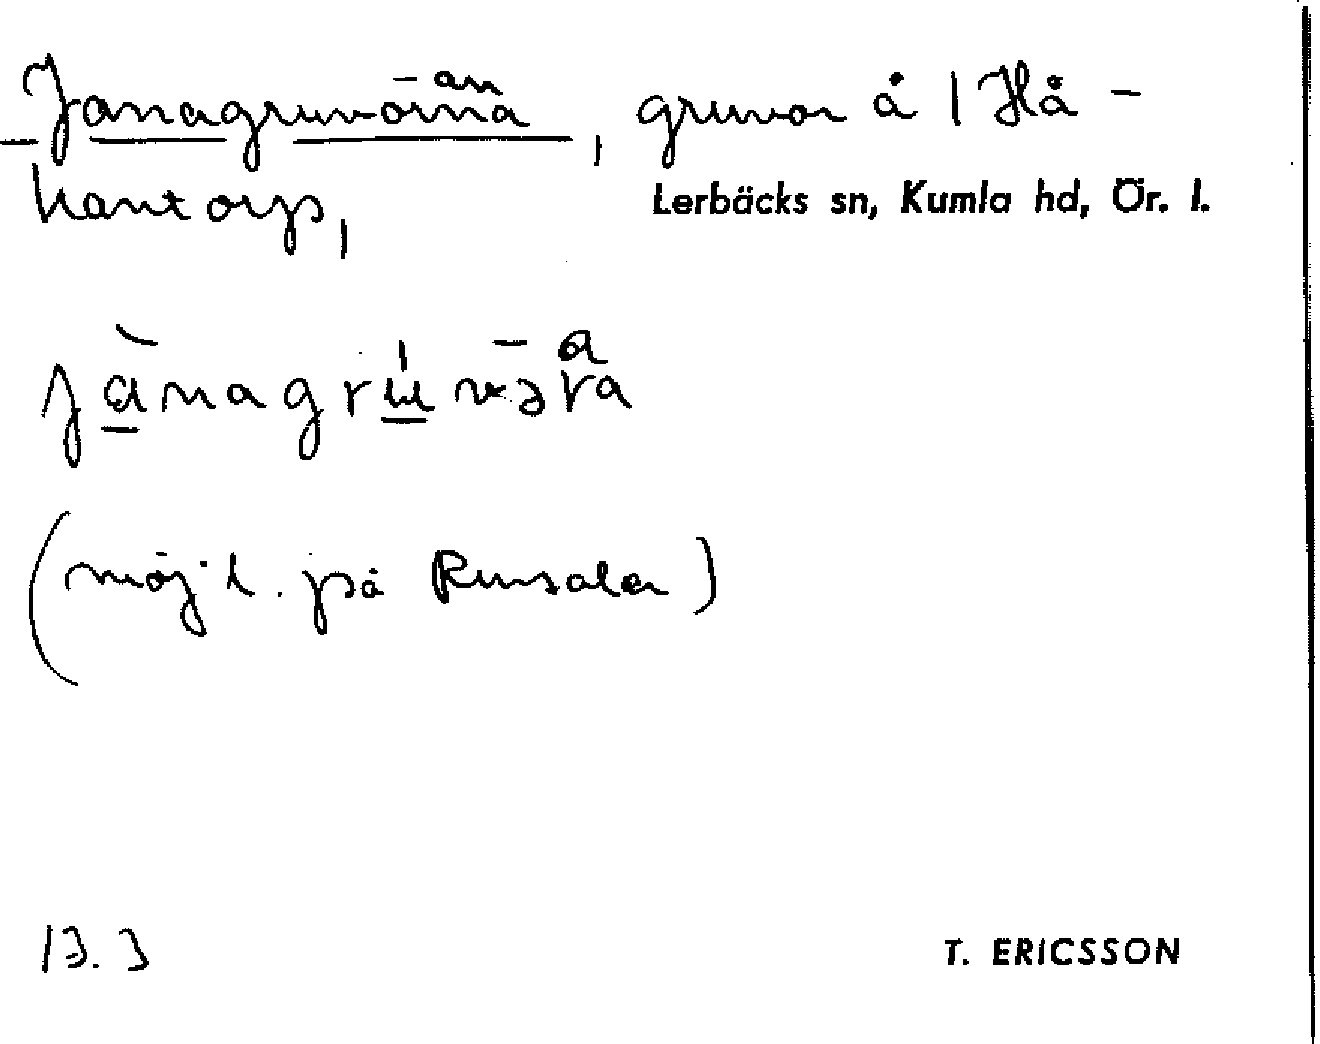 -an
Janagruvorna, gruvor å | Hå-
kantorp,
Lerbäcks sn, Kumla hd, Ör. l.
a
jànagrúvəra
(möjl. på Rusala)
13.3
T. ERICSSON